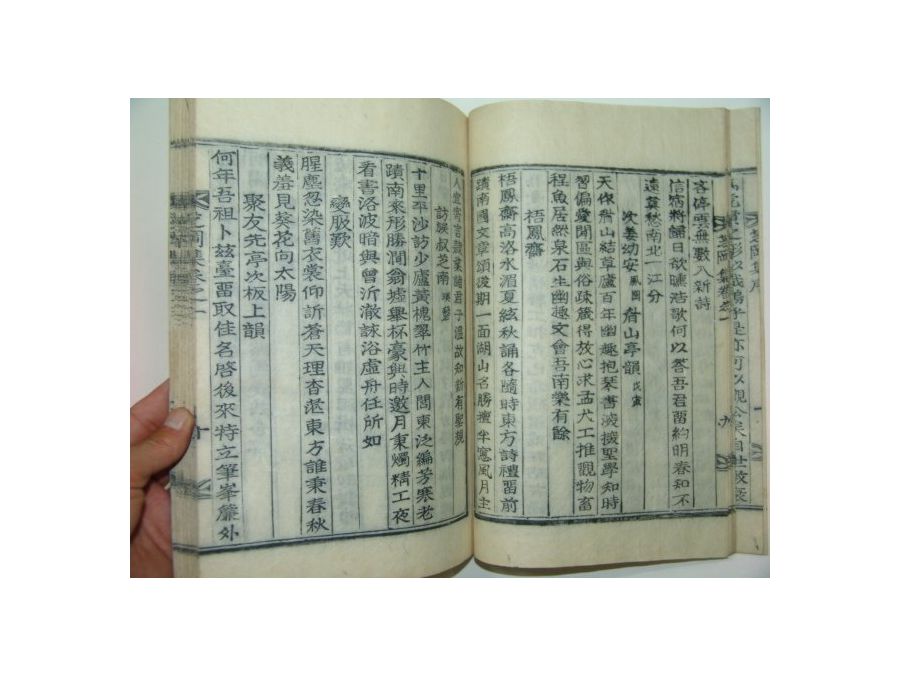 芝岡集序
芝岡集卷之一
九
客停雲無數入新詩
信宿將歸日欲曛浩歌何以答吾君留約明春知不
遠草秋南北一江分
次姜幼安鳳岡看山亭韻戊寅
天作看山結草廬百年幽趣抱琴書濊擄聖學知時
習偏愛閒區與俗疎箴得放心求孟犬工推觀物畜
程魚居然泉石生幽趣文會吾南樂有餘
梧鳳齋
梧鳳齋高洛水湄夏絃秋誦各隨時東方詩禮留前
蹟南國文章頌後期一面湖山名勝擅半窓風月主
人宜寄言隷業諭君子溫故知新有聖規
訪族叔芝南
十里平沙訪少廬黃槐翠竹主人閭東泛編芳寒老
蹟南來形勝澗翁墟擧杯豪興時邀月秉燭精工夜
看書洛波暗與曾沂澈詠浴虛舟任所如
變服歎
腥塵忽染舊衣裳仰訴蒼天理杳茫東方誰秉春秋
義羞見葵花向太陽
聚友先亭次板上韻
何年吾祖卜玆臺留取佳名啓後來特立筆峯簾外
芝岡集卷之一
十